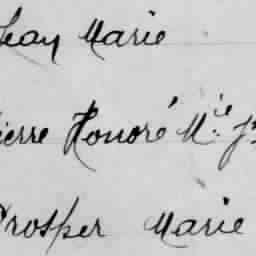 Jean Marie
Pierre Honoré M.ie
Prosper Marie